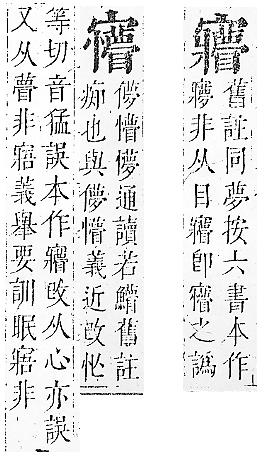 舊註同夢按六書本作
㝱非从目卽之譌
儚懵儚通讀若舊註
痴也與儚懵義近改忙
等切音猛誤本作改从心亦誤
又从瞢非寤義舉要訓眠寤非